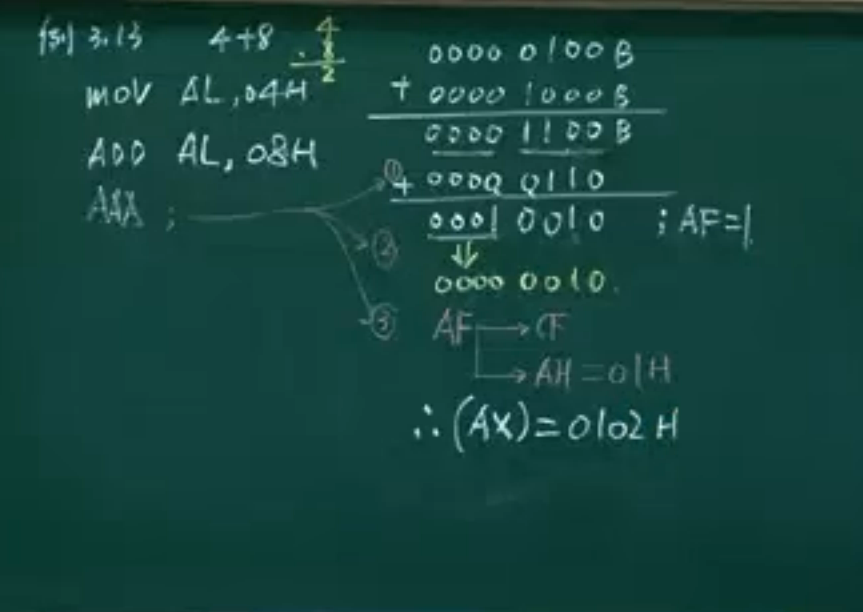 例 3.13 4+8
4
8
2
MOV AL,04H
ADD AL,08H
AAA ;
0000 0100B
+ 0000 1000B
0000 1100B
① + 0000 0110
0001 0010 ; AF=1
②
0000 0010.
③ AF → CF
→ AH=01H
∴(AX)=0102H